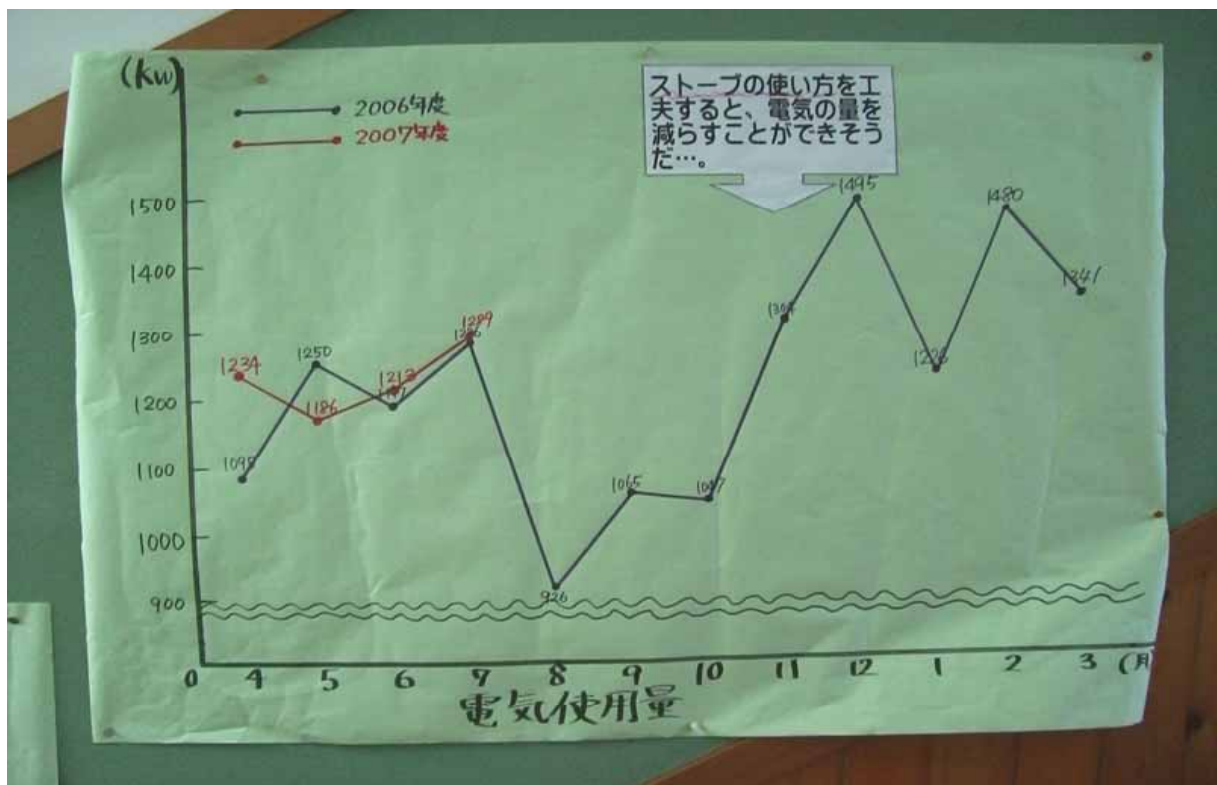 (kw)
2006年度
2007年度
ストーブの使い方を工
夫すると、電気の量を
減らすことができそう
だ…。
1500
1400
1300
1200
1100
1000
900
1234
1186
1213
1289
1250
926
1065
1047
1495
1480
0 4 5 6 7 8 9 10 11 12 1 2 3 (月)
電気使用量